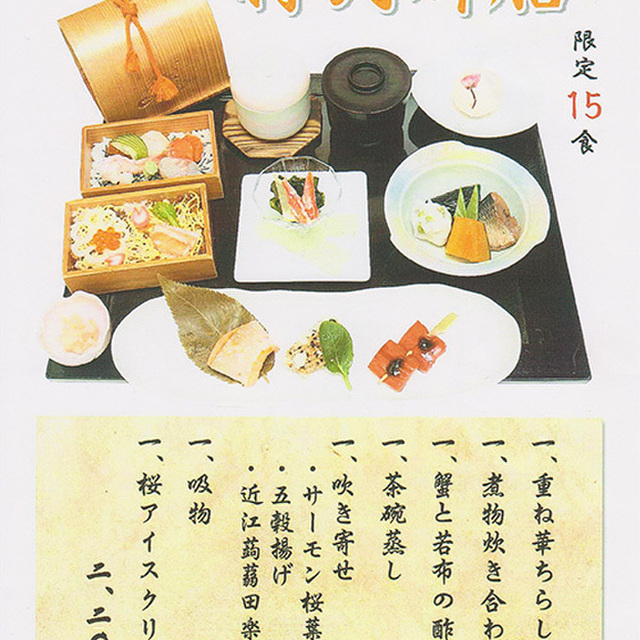 限定15食
一、重ね華ちらし
一、煮物炊き合わ
一、蟹と若布の酢
一、茶碗蒸し
一、吹き寄せ
・サーモン桜葉
・五穀揚げ
・近江蒟蒻田楽
一、吸物
一、桜アイスクリ
二、二〇